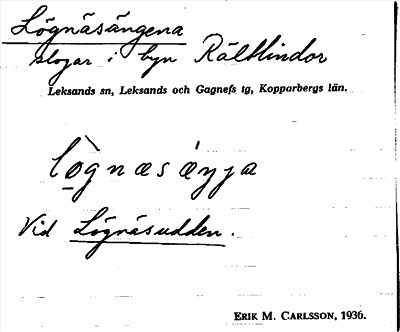 Lögnäsängena
slogar i byn Rältlindor
Leksands sn, Leksands och Gagnefs tg, Kopparbergs län.
lò̠gnæsáŋŋa
Vid Lögnäsudden.
ERIK M. CARLSSON, 1936.